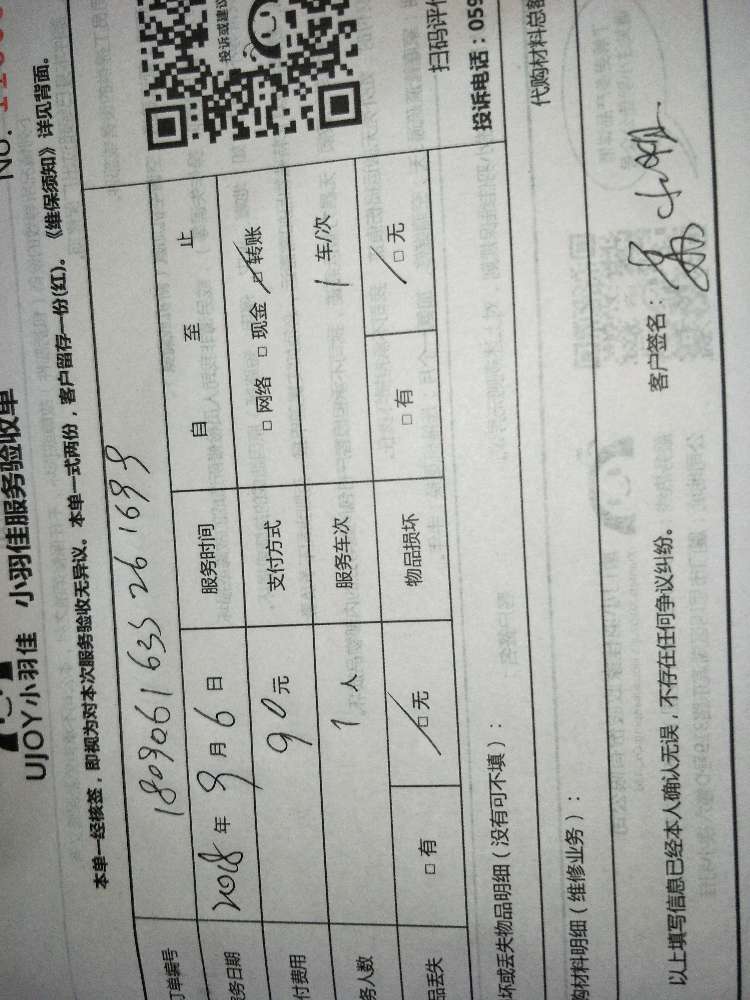 NO.
UJOY小羽佳 小羽佳服务验收单
本单一经核签，即视为对本次服务验收无异议。本单一式两份，客户留存一份(红)。《维保须知》详见背面。
投诉或建议
订单编号 1809061635261699
务日期 2018年9月6日 服务时间 自 至 止
付费用 90元 支付方式 □网络 □现金 □转账
务人数 1人 服务车次 1车/次
品丢失 □有 □无 物品损坏 □有 □无
扫码评价
投诉电话：059
坏或丢失物品明细（没有可不填）：
代购材料总额
购材料明细（维修业务）：
以上填写信息已经本人确认无误，不存在任何争议纠纷。 客户签名：